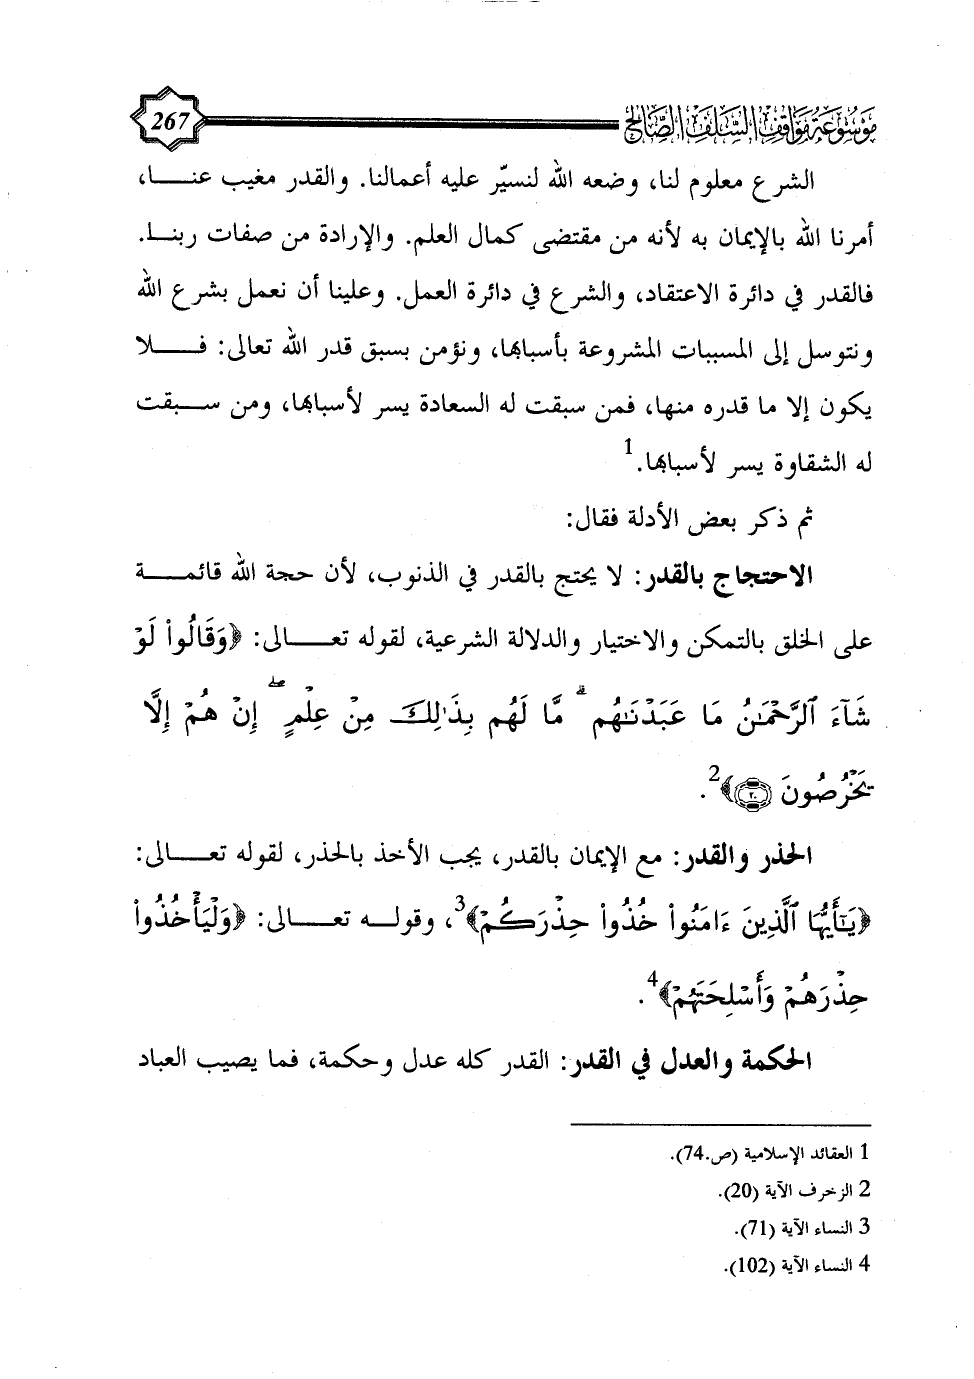 موسوعة مواقف السلف الصالح
267
الشرع معلوم لنا، وضعه الله لنسيّر عليه أعمالنا. والقدر مغيب عنـــا،
أمرنا الله بالإيمان به لأنه من مقتضى كمال العلم. والإرادة من صفات ربنــا.
فالقدر في دائرة الاعتقاد، والشرع في دائرة العمل. وعلينا أن نعمل بشرع الله
ونتوسل إلى المسببات المشروعة بأسبابها، ونؤمن بسبق قدر الله تعالى: فـــلا
يكون إلا ما قدره منها، فمن سبقت له السعادة يسر لأسبابها، ومن ســبقت
له الشقاوة يسر لأسبابها.1
ثم ذكر بعض الأدلة فقال:
الاحتجاج بالقدر: لا يحتج بالقدر في الذنوب، لأن حجة الله قائمـــة
على الخلق بالتمكن والاختيار والدلالة الشرعية، لقوله تعـــالى: ﴿وَقَالُواْ لَوْ
شَآءَ ٱلرَّحْمَٰنُ مَا عَبَدْنَٰهُم ۗ مَّا لَهُم بِذَٰلِكَ مِنْ عِلْمٍ ۖ إِنْ هُمْ إِلَّا
يَخْرُصُونَ ٢٠﴾2.
الحذر والقدر: مع الإيمان بالقدر، يجب الأخذ بالحذر، لقوله تعـــالى:
﴿يَٰٓأَيُّهَا ٱلَّذِينَ ءَامَنُواْ خُذُواْ حِذْرَكُمْ﴾3، وقولــه تعـــالى: ﴿وَلْيَأْخُذُواْ
حِذْرَهُمْ وَأَسْلِحَتَهُمْ﴾4.
الحكمة والعدل في القدر: القدر كله عدل وحكمة، فما يصيب العباد
1 العقائد الإسلامية (ص.74).
2 الزخرف الآية (20).
3 النساء الآية (71).
4 النساء الآية (102).